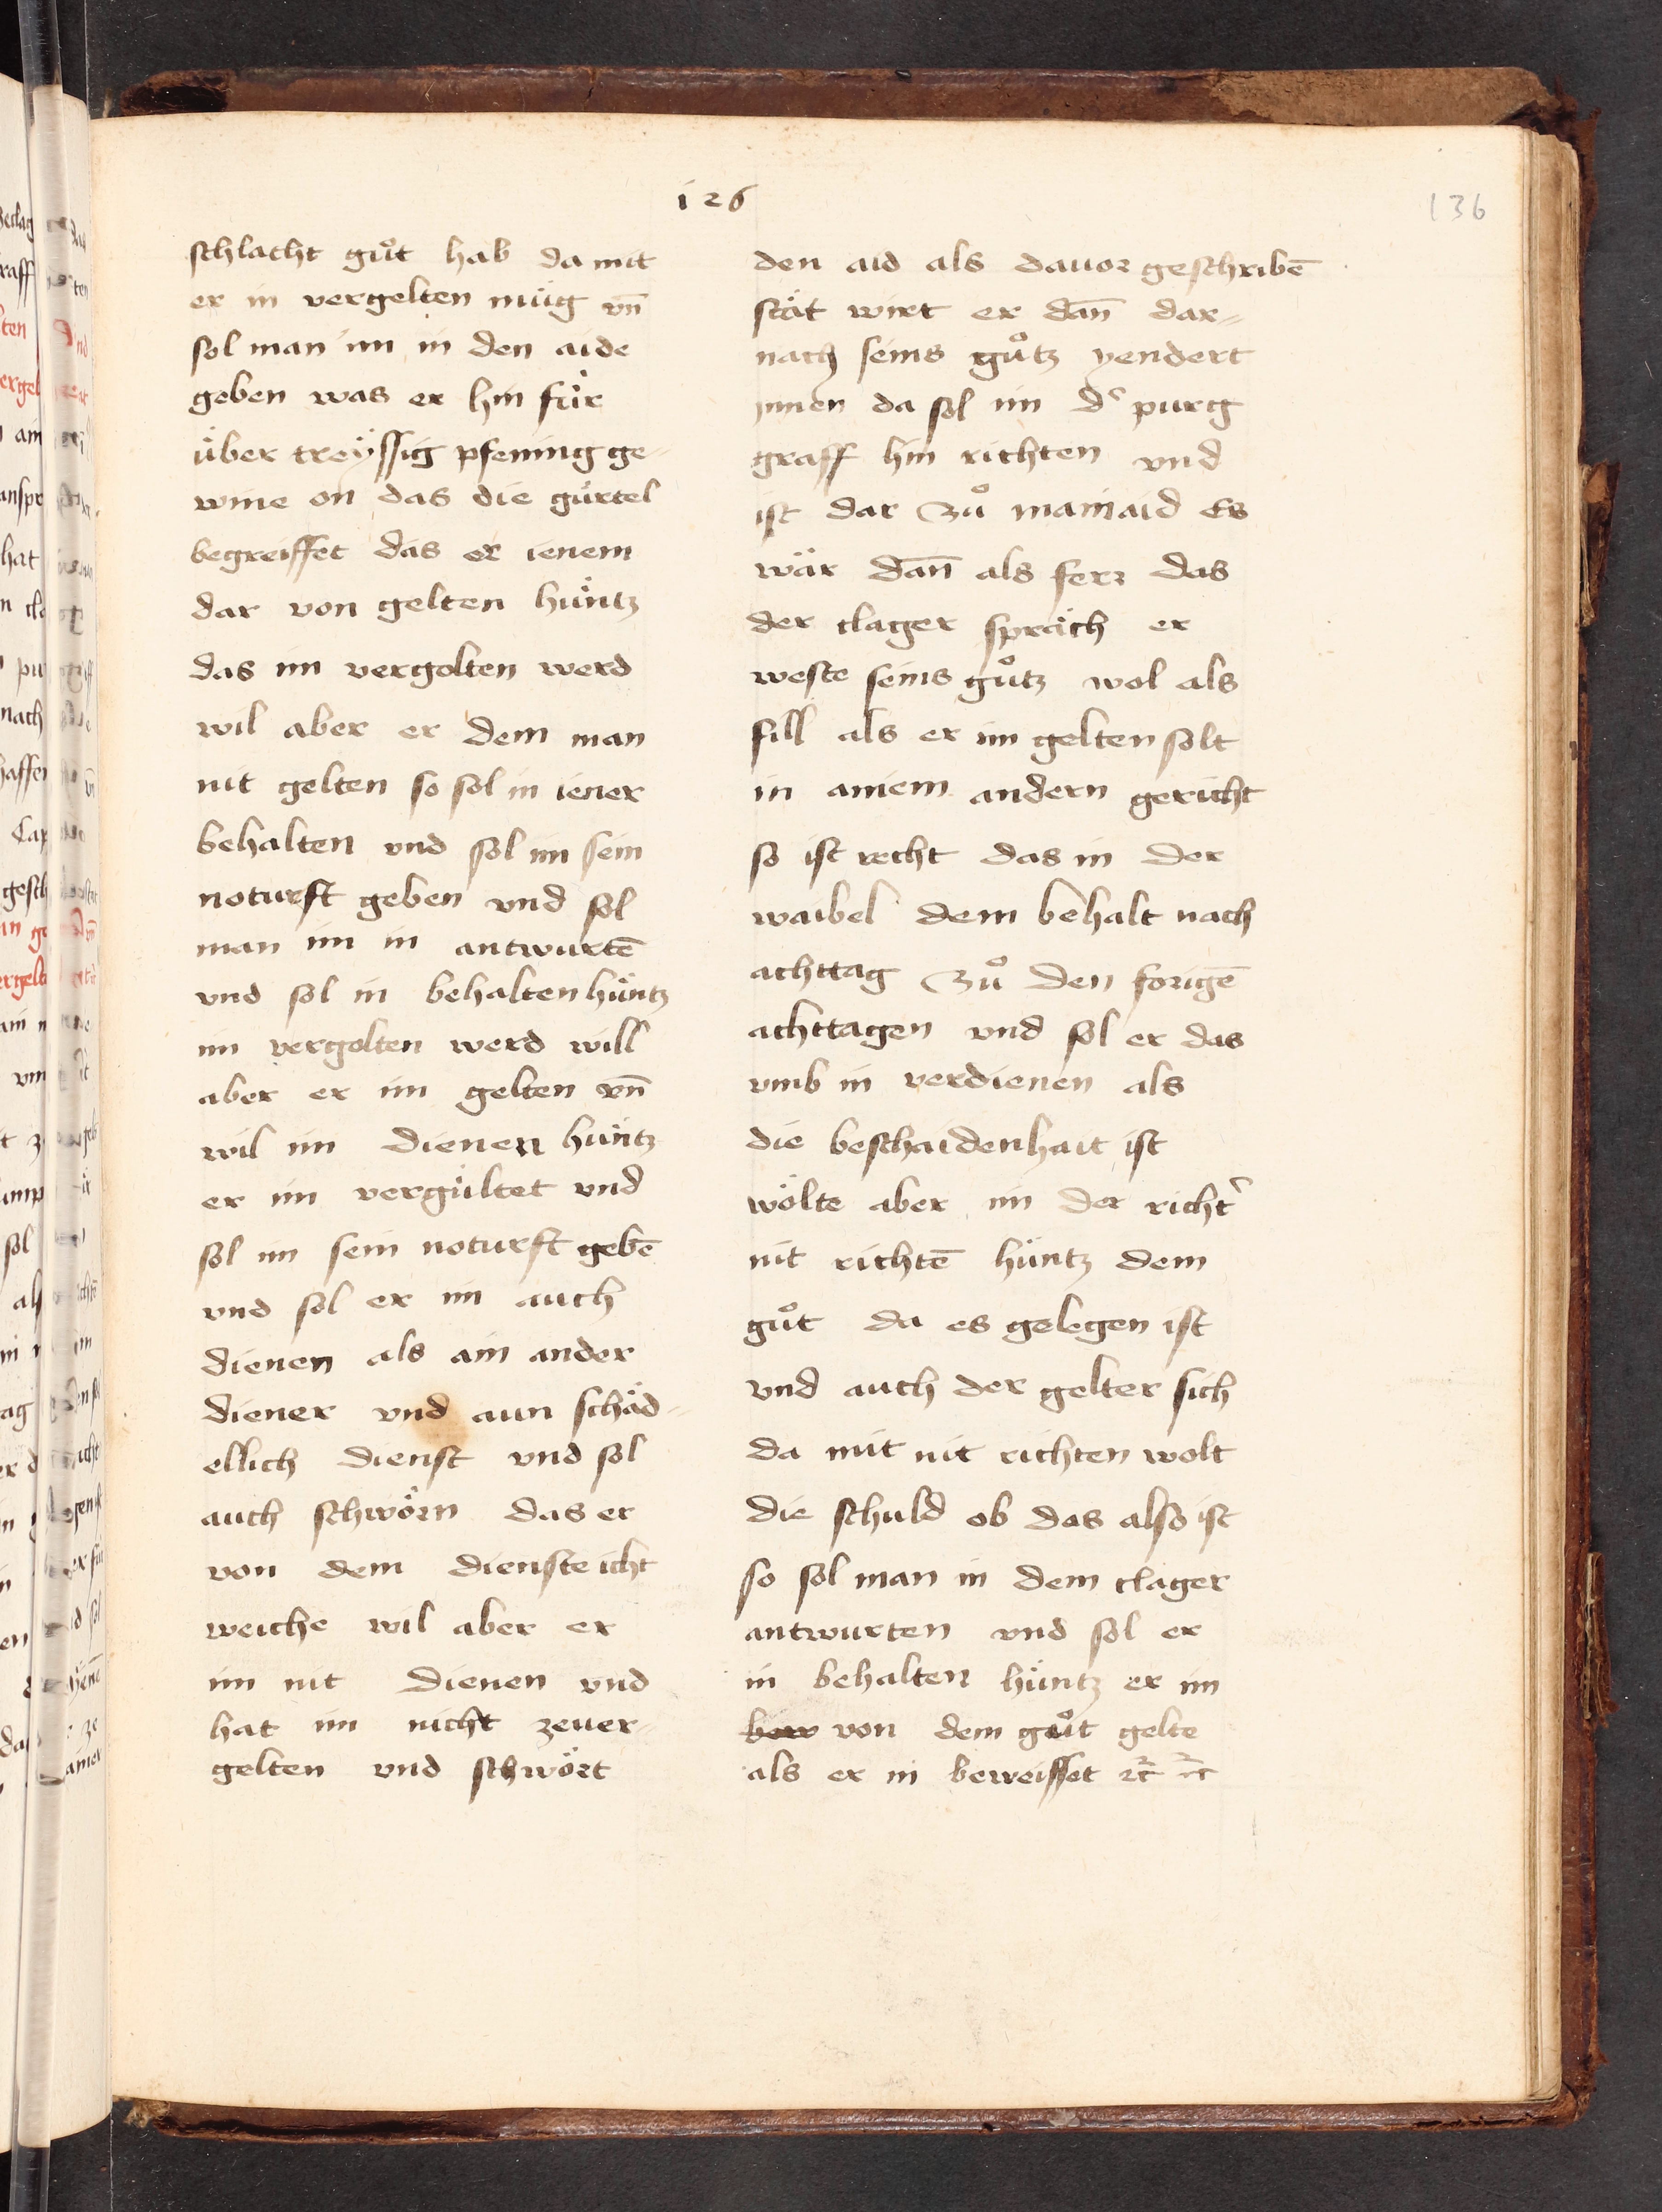 126
136
schlacht gůt hab da mit
er in vergelten müg vn̄
sol man im in den aide
geben was er hin für
über treÿssig pfening ge=
wine on das die gürtel
begreiffet das er ienem
dar von gelten hüntz
das im vergolten werd
wil aber er dem man
nit gelten so sol in iener
behalten vnd sol im sein
noturft geben vnd sol
man im in antwurtē
vnd sol in behalten hüntz
im vergolten werd will
aber er im gelten vn̄
wil im dienen hüntz
er im vergültet vnd
sol im sein noturft gebē
vnd sol er im auch
dienen als ain ander
diener vnd aun schäd=
ellich dienst vnd sol
auch schwörn das er
von dem dienste icht
weiche wil aber er
im nit dienen vnd
hat im nicht zeuer=
gelten vnd schwört
den aid als dauor geschribē
stät wirt er dan̄ dar=
nach seins gůtz yendert
jnnen da sol im d' purg
graff hin richten vnd
ist dar zů mainaid Es
wär dan̄ als ferr das
der clager spräch er
weste seins gůtz wol als
fill als er im gelten solt
in ainem andern gericht
so ist recht das in der
waibel dem behalt nach
achttag zů den forigē
achttagen vnd sol er das
vmb in verdienen als
die beschaidenhait ist
wölte aber im der richt'
nit richtē hüntz dem
gůt da es gelegen ist
vnd auch der gelter sich
da mit nit richten wolt
die schuld ob das also ist
so sol man in dem clager
antwurten vnd sol er
in behalten hüntz er im
von dem gůt gelte
als er in beweisset ꝛc̃ ꝛc̃